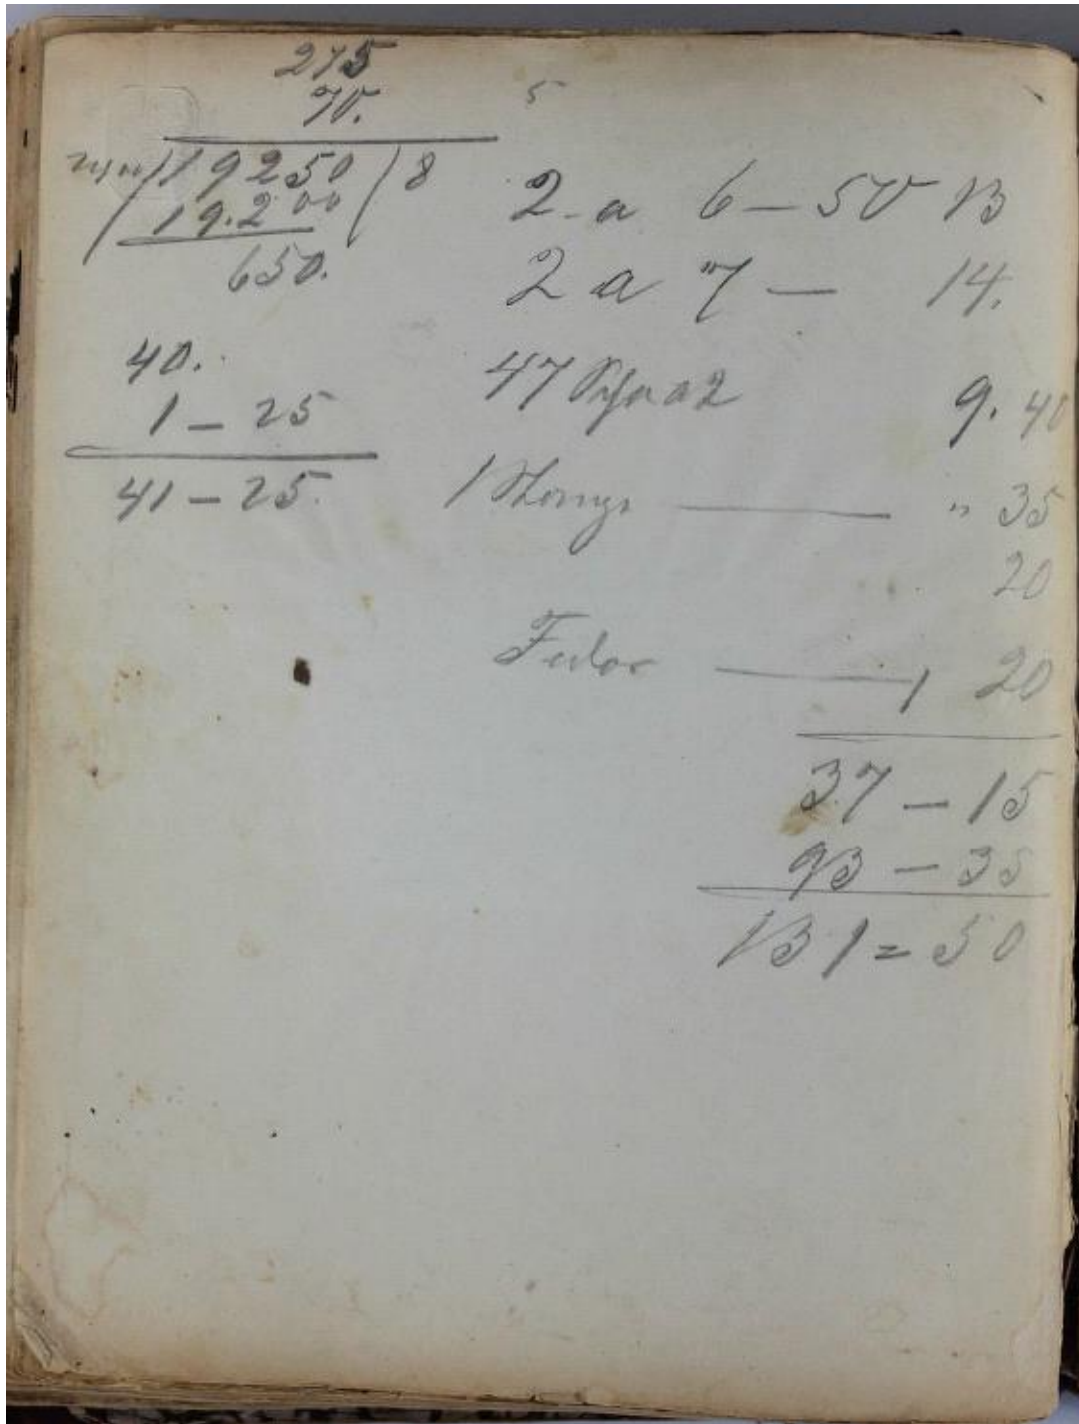 275
70.
2400/19250/8
19.200
650.
40.
1 - 25
41 - 25.
5
2 a 6 - 50 13
2 a 7 - 14.
47 9. 40
1 Stange — " 35
20
Fedor — 1 20
37 - 15
93 - 35
131 = 50